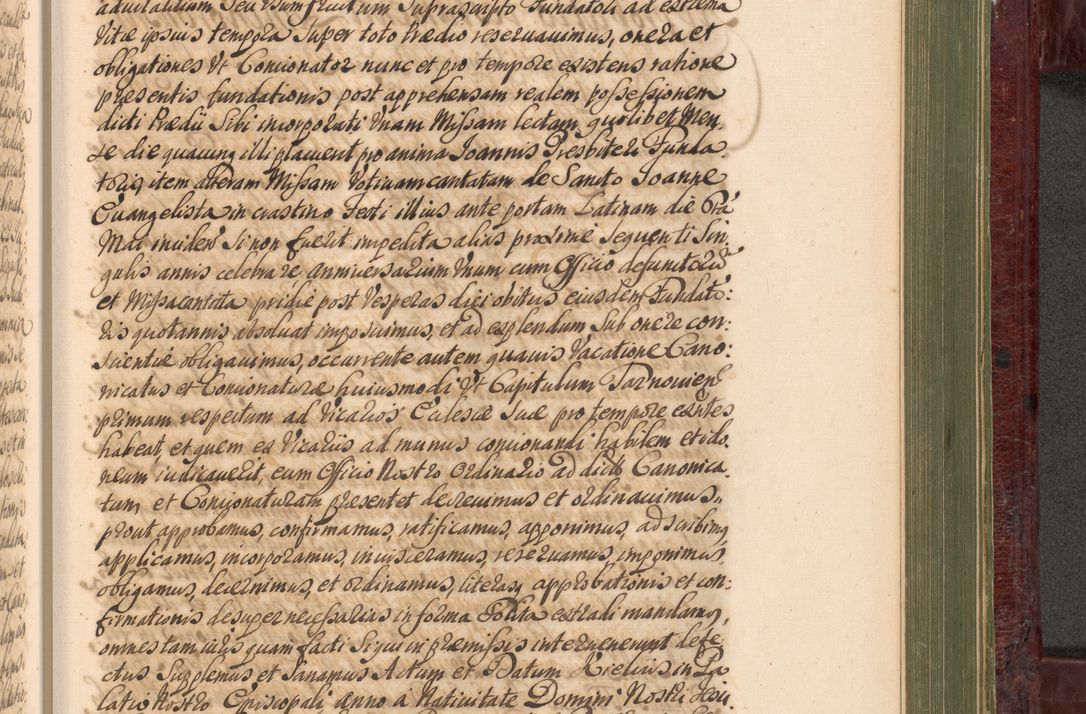 advitalitium seu usum fructum suprascripto Fundatori ad extrema
Vitæ ipsius tempora super toto Prædio reservavimus, onera et
obligationes Vt Concionator nunc et pro tempore existens ratione
præsentis fundationis post apprehensam realem possessionem
dicti Prædii sibi incorporati Vnam Missam lectam, quolibet Men,
se die quacunq illi placuerit pro anima Joannis Presbiteri Funda
toris, item alteram Missam Votivam cantatam de Sancto Joanne
Euangelista in crastino Festi illius ante portam Latinam die
Mai inciden si non fuerit impedita alias proxime sequenti Sin,
gulis annis celebrare Anniversarium Vnum cum Officio defunctoru
et Missa cantata pridie post Vesperas diei obitus eiusdem Fundato:
ris quotannis absoluat imposuimus, et ad explendum sub onere con:
scientiæ obligauimus, occurrente autem quauis Vacatione Cano:
nicatus et Concionaturæ huiusmodi Vt Capitulum Tarnouien
primum respectum ad Vicarios Eclesiæ suæ pro tempore extntes
habeat, et quem ex Vicariis ad munus concionandi habilem et ido
neum iudicauerit, eum Officio Nostro Ordinario ad dictu Canonica
tum, et Concionaturam præsentet decreuimus et ordinauimus,
prout approbamus, confirmamus, ratificamus, apponimus, adscribimq
applicamus, incorporamus, inuisceramus, reseruamus, imponimus
obligamus, decernimus, et ordinamus, literas, approbationis et con:
firmationis desuper necessarias in forma Solita extradi mandamq,
omnes tam iuris quam facti si qui in præmissis interuenerunt defe
ctus supplemus et sanamus Actum et Datum Kielciis in Pa
latio Nostro Episcopali Anno à Natiuitate Domini Nostri Jesu